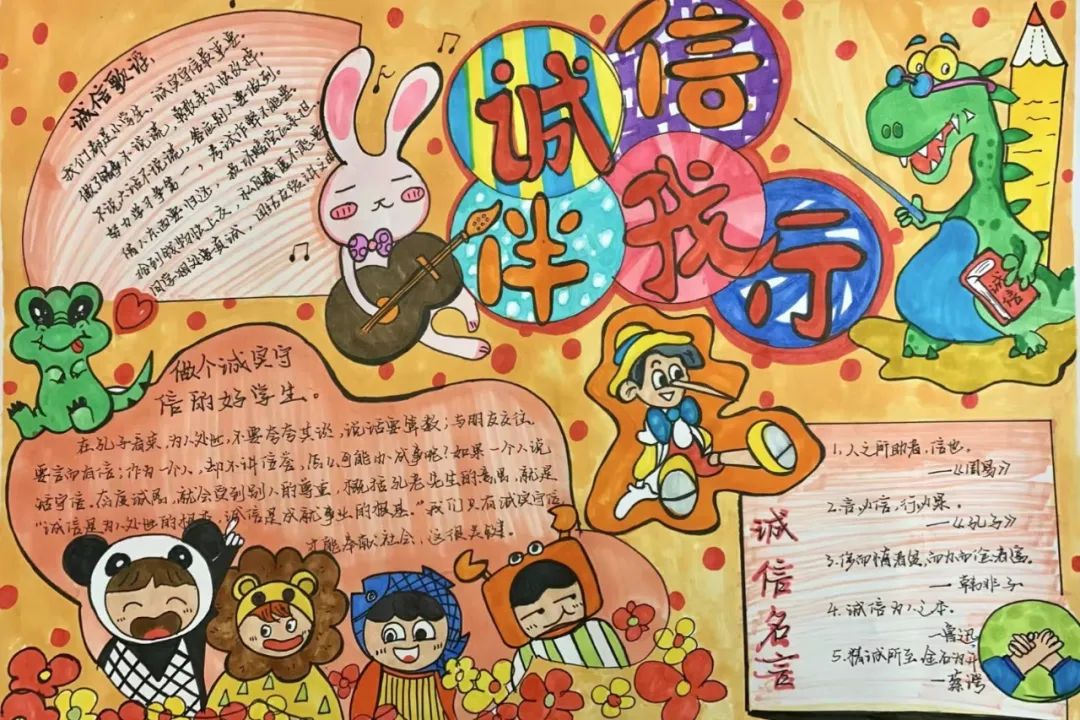 诚信伴我行
诚信歌谣
我们都是小学生,诚实守信最重要。
做了错事不说谎,勇敢承认
不说大话不说谎,答应别人要做到。
努力学习争第一,考试作弊不能要。
借人东西要归还,
捡到钱物快上交,私自藏匿不
同学相处要真诚,
做个诚实守
信的好学生。
在孔子看来,为人处世,不要夸夸其谈,说话要算数;与朋友交往,
要言而有信;作为一个人,却不讲信誉,怎么可能办成事呢?如果一个人说
话守信,态度诚恳,就会受到别人的尊重,概括孔老先生的意思,就是
“诚信是为人处世的根本,诚信是成就事业的根基。”我们只有诚实守信
才能奉献社会,这很关键。
诚信
诚信名言
1.人之所助者,信也。
—《周易》
2.言必信,行必果。
—《孔子》
3.
—韩非子
4.诚信为人之本。
—鲁迅
5.精诚所至,金石为开
—蔡